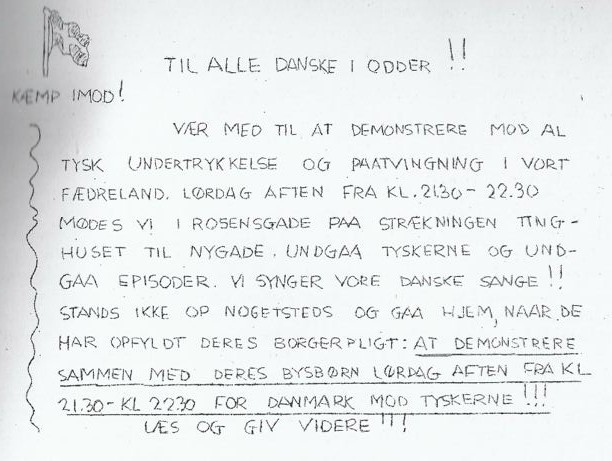 TIL ALLE DANSKE I ODDER !!
KÆMP IMOD!
VÆR MED TIL AT DEMONSTRERE MOD AL
TYSK UNDERTRYKKELSE OG PAATVINGNING I VORT
FÆDRELAND. LØRDAG AFTEN FRA KL. 21.30 - 22.30
MØDES VI I ROSENSGADE PAA STRÆKNINGEN TING-
HUSET TIL NYGADE. UNDGAA TYSKERNE OG UND-
GAA EPISODER. VI SYNGER VORE DANSKE SANGE !!
STANDS IKKE OP NOGETSTEDS OG GAA HJEM, NAAR DE
HAR OPFYLDT DERES BORGERPLIGT: AT DEMONSTRERE
SAMMEN MED DERES BYSBØRN LØRDAG AFTEN FRA KL
21.30 - KL 22.30 FOR DANMARK MOD TYSKERNE !!!
LÆS OG GIV VIDERE !!!